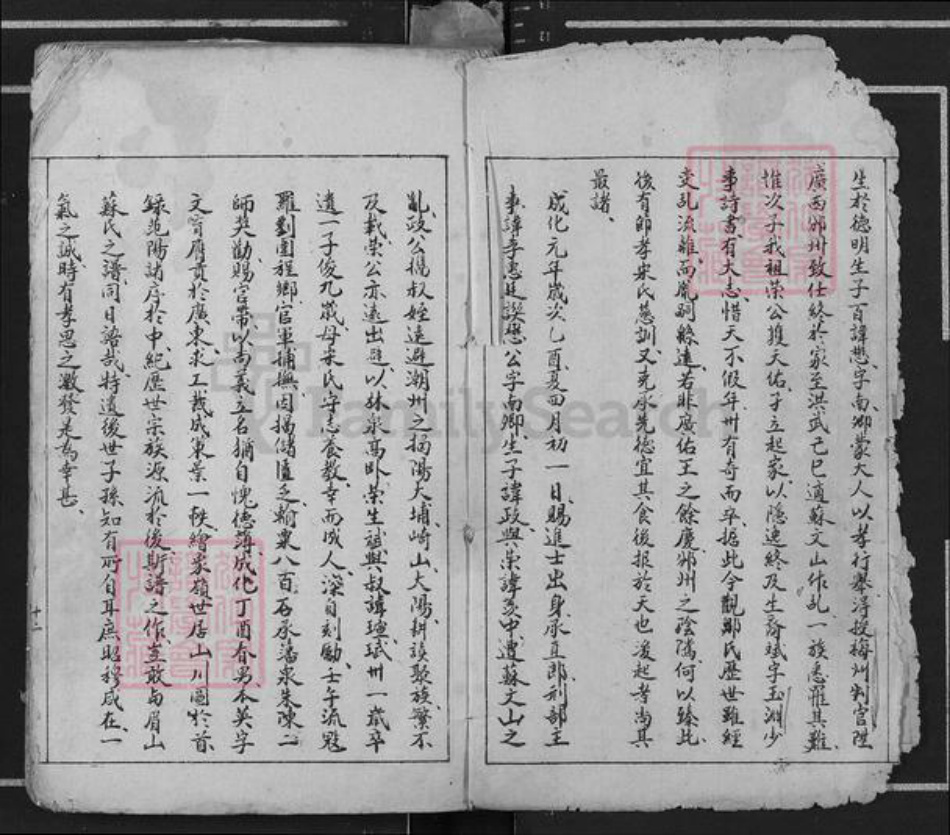 生於德明生子百諱懋字南鄉蒙大人以孝行舉淂授梅州判官陞
廣西邠州致仕終於家至洪武己巳適蘇文山作乱一族悉罹其難
惟次子我祖榮公獲天佑子立起家以隱逸終及生裔斌字玉淵少
事詩書有大志惜天不假年卅有奇而卒据此今觀鄒氏歷世雖經
变乱流離而胤嗣綿遠若非廣佑王之餘慶邠州之陰隲何以臻此
後有卽孝宋氏慈訓又克承先德宜其食後报於天也後起者尚其
最諸
成化元年歲次乙酉夏四月初一日賜進士出身承直郎刑部主
事諱李惠廷譔懋公字南鄉生子諱政與榮諱蒙中遭蘇文山之
亂政公攜叔姪遠避潮州之揭陽大埔﨑山大陽耕讀聚族繁不
及載榮公亦遠出避以林泉高卧榮生斌與叔諱瑄斌卅一歲卒
遺一子俊九歲母宋氏守志養教幸而成人深自刻勵壬午流寇
羅劉圍程鄉官軍捕撫因揭儲匱乏輸粟八百石承藩泉朱陳二
師奖勸賜官帶以尚義立名猶自愧德薄成化丁酉春男本英字
文膺貢於廣東求工裁成東業一帙繪家嶺世居山川圖於首
録范陽諸序於中紀歷世宗族源流於後斯譜之作豈敢与眉山
蘇氏之譜同日語哉特遺後世子孫知有所自耳庶昭穆咸在一
氣之誠時有孝思之激發是為幸甚
十二
FamilySearch